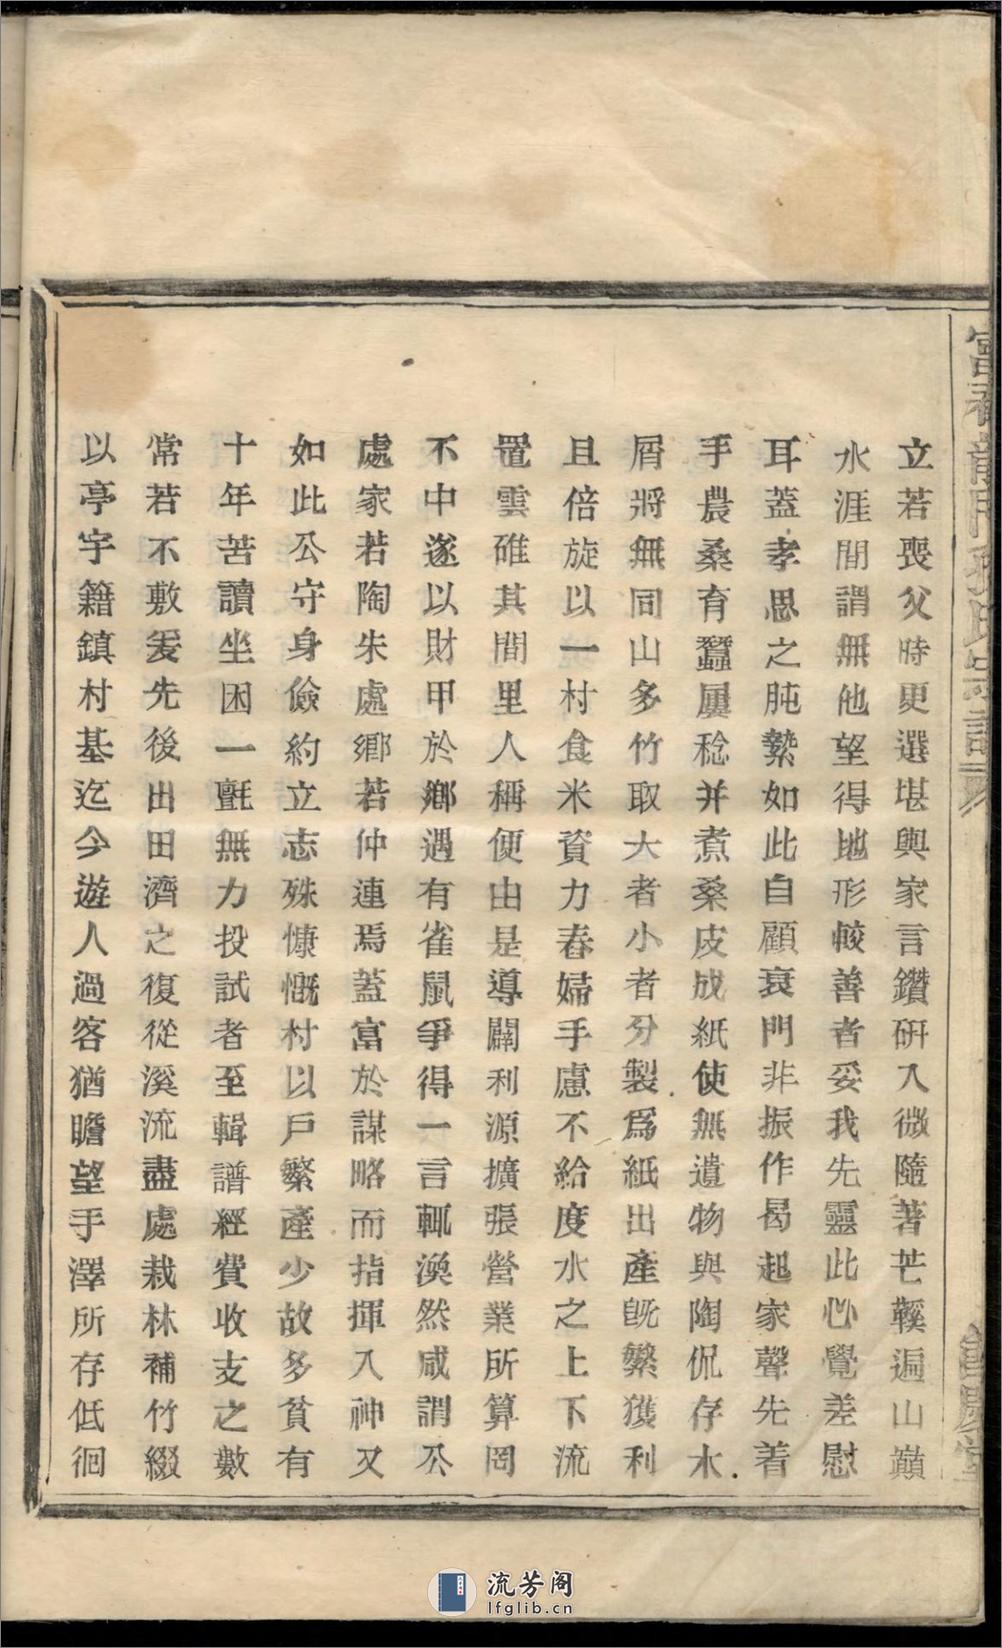 立若喪父時更選堪輿家言鑽研入微隨著芒鞵遍山巔
水涯間謂無他望得地形較善者妥我先靈此心覺差慰
耳蓋孝思之肫摯如此自顧衰門非振作曷起家聲先着
手農桑育蠶屢稔并煮桑皮成紙使無遺物與陶侃存木
屑將無同山多竹取大者小者分製爲紙出產旣繁獲利
且倍旋以一村食米資力春婦手慮不給度水之上下流
置雲碓其間里人稱便由是導闢利源擴張營業所算罔
不中遂以財甲於鄉遇有雀鼠爭得一言輒渙然咸謂公
處家若陶朱處鄉若仲連焉蓋富於謀略而指揮入神又
如此公守身儉約立志殊慷慨村以戶繁產少故多貧有
十年苦讀坐困一氈無力投試者至輯譜經費收支之數
常若不敷爰先後出田濟之復從溪流盡處栽林補竹綴
以亭宇籍鎮村基迄今遊人過客猶瞻望手澤所存低徊
富春龍門孫氏宗譜
流芳阁
lfglib.cn